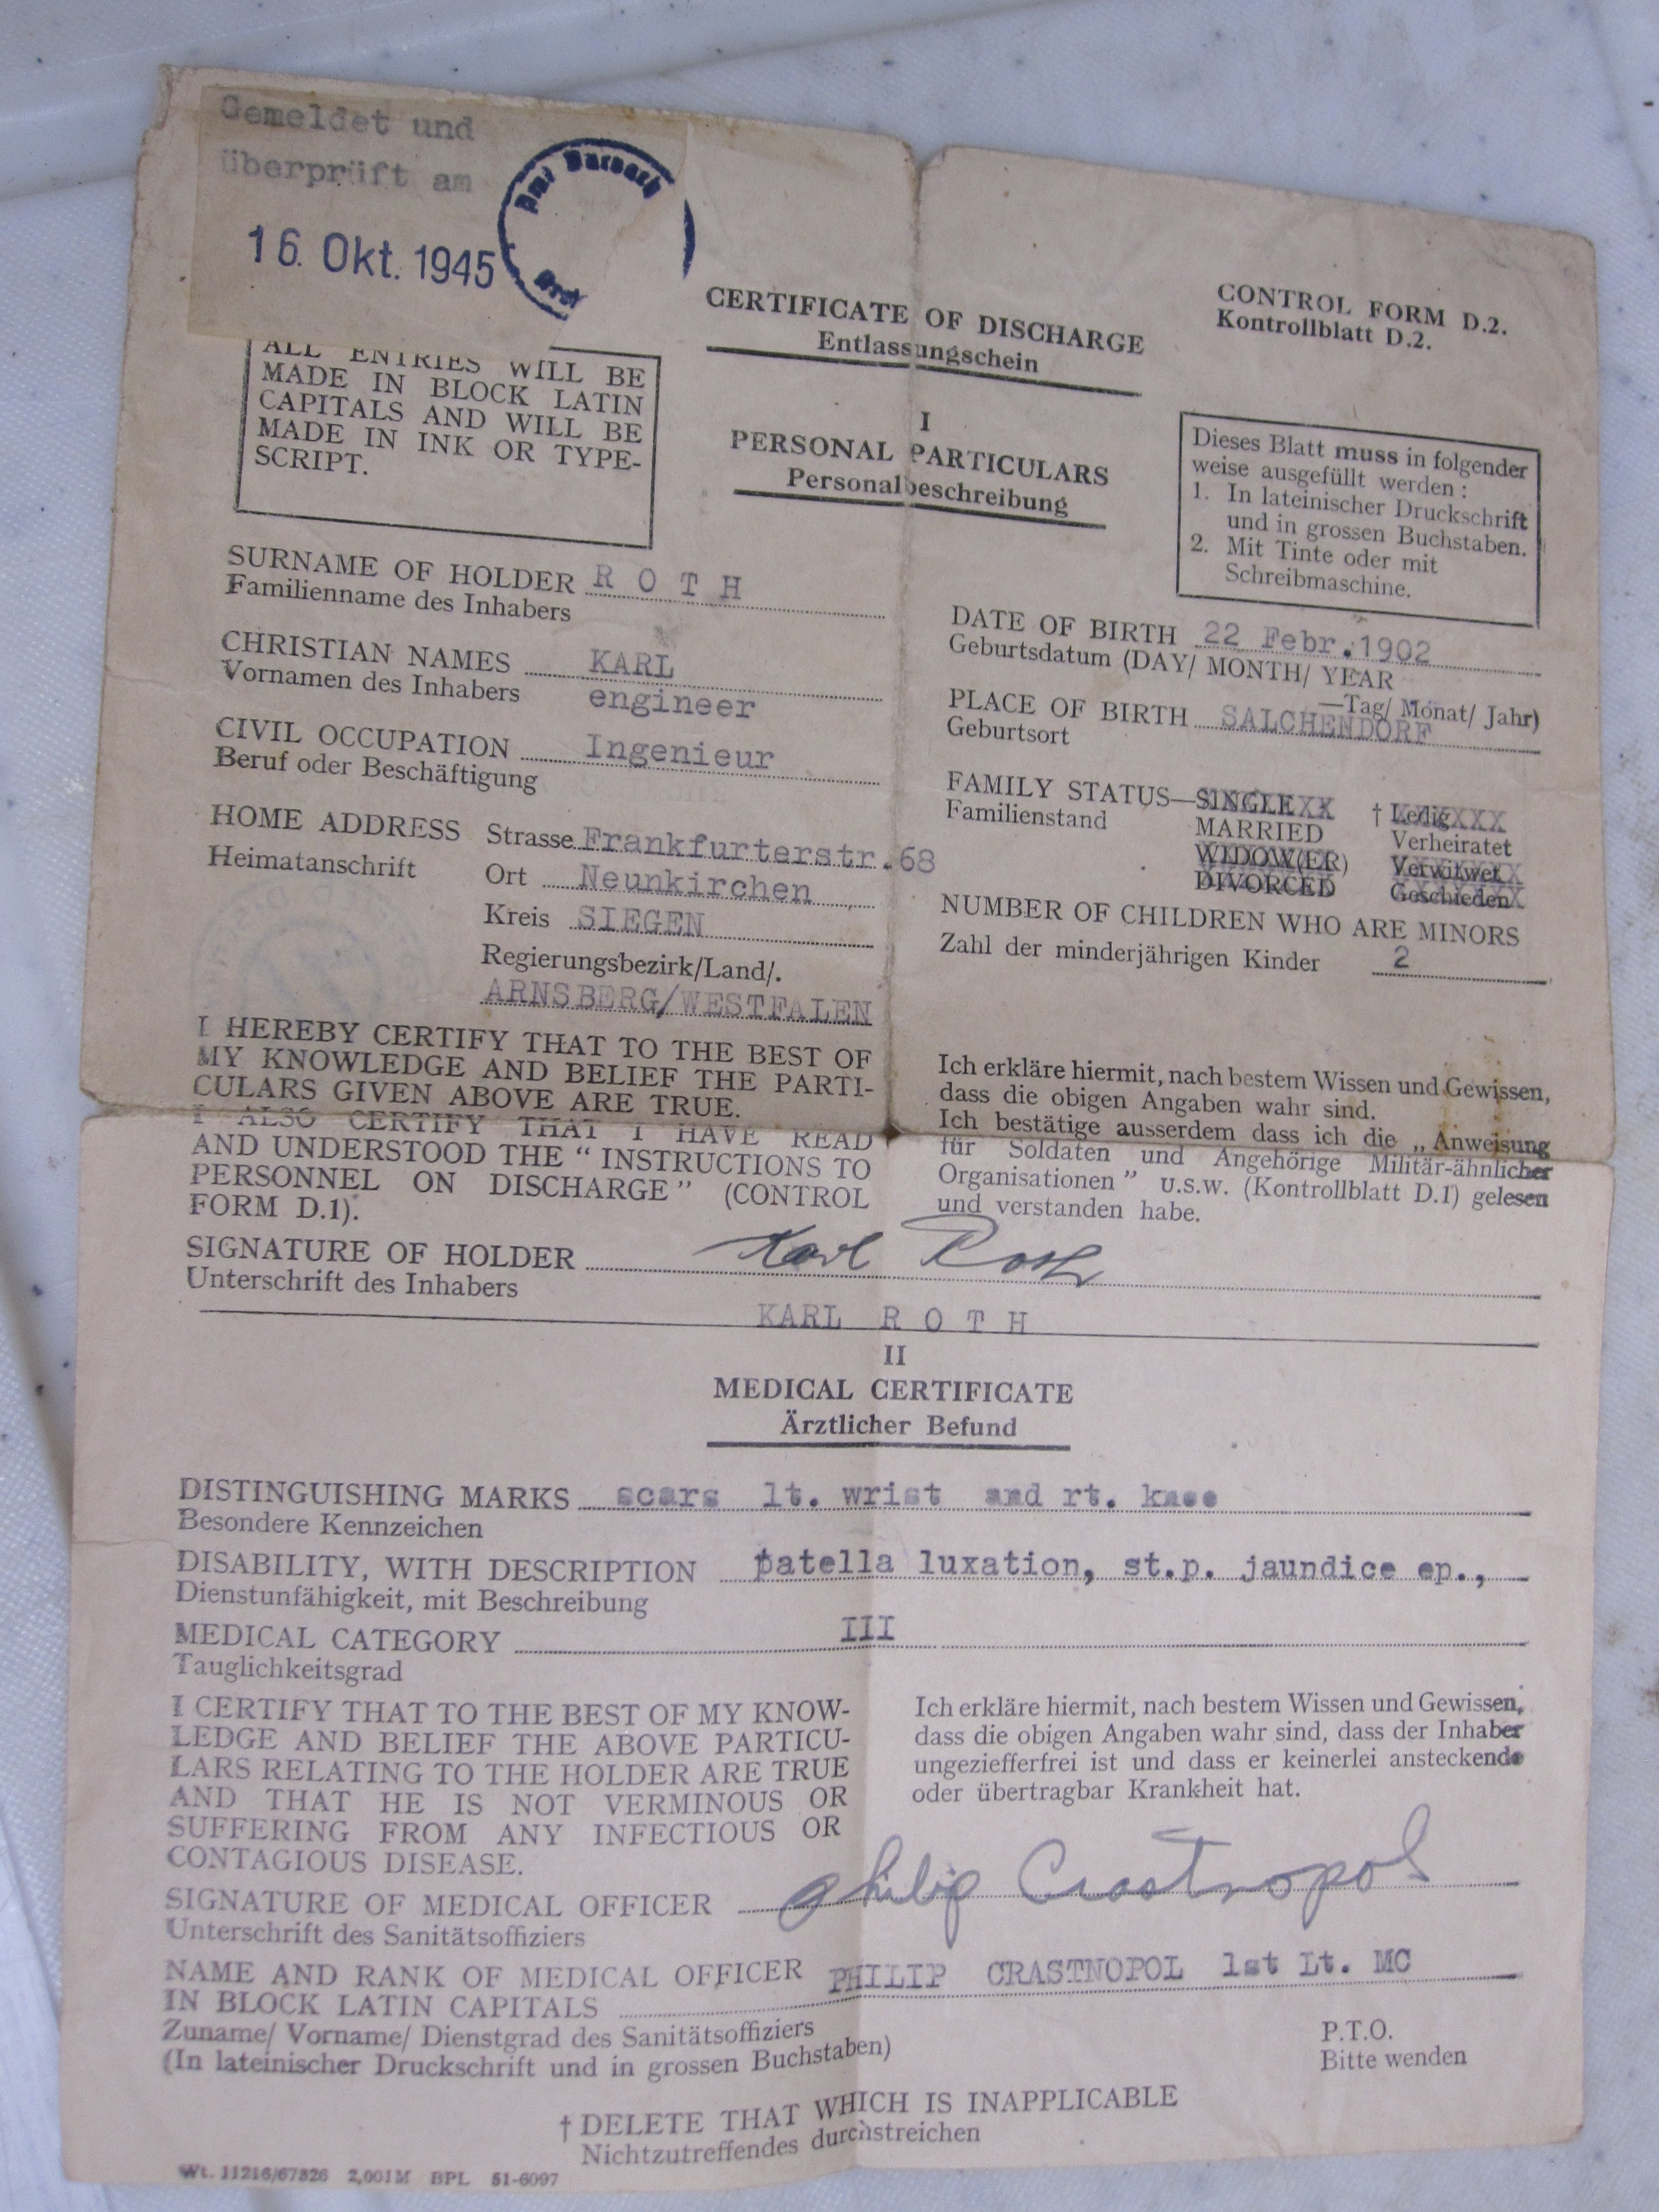 Gemeldet und
überprüft am
16. Okt. 1945
Amt Burbach
CERTIFICATE OF DISCHARGE
Entlassungschein
CONTROL FORM D.2.
Kontrollblatt D.2.
ALL ENTRIES WILL BE
MADE IN BLOCK LATIN
CAPITALS AND WILL BE
MADE IN INK OR TYPE-
SCRIPT.
I
PERSONAL PARTICULARS
Personalbeschreibung
Dieses Blatt muss in folgender
weise ausgefüllt werden :
1. In lateinischer Druckschrift
und in grossen Buchstaben.
2. Mit Tinte oder mit
Schreibmaschine.
SURNAME OF HOLDER R O T H
Familienname des Inhabers
CHRISTIAN NAMES KARL
Vornamen des Inhabers
engineer
CIVIL OCCUPATION Ingenieur
Beruf oder Beschäftigung
HOME ADDRESS Strasse Frankfurterstr.68
Heimatanschrift
Ort Neunkirchen
Kreis SIEGEN
Regierungsbezirk/Land/.
ARNSBERG/WESTFALEN
DATE OF BIRTH 22 Febr.1902
Geburtsdatum (DAY/ MONTH/ YEAR
—Tag/ Monat/ Jahr)
PLACE OF BIRTH SALCHENDORF
Geburtsort
FAMILY STATUS—SINGLE † Ledig
Familienstand MARRIED Verheiratet
WIDOW(ER) Verwitwet
DIVORCED Geschieden
NUMBER OF CHILDREN WHO ARE MINORS
Zahl der minderjährigen Kinder 2
I HEREBY CERTIFY THAT TO THE BEST OF
MY KNOWLEDGE AND BELIEF THE PARTI-
CULARS GIVEN ABOVE ARE TRUE.
I ALSO CERTIFY THAT I HAVE READ
AND UNDERSTOOD THE “ INSTRUCTIONS TO
PERSONNEL ON DISCHARGE ” (CONTROL
FORM D.1).
Ich erkläre hiermit, nach bestem Wissen und Gewissen,
dass die obigen Angaben wahr sind.
Ich bestätige ausserdem dass ich die „ Anweisung
für Soldaten und Angehörige Militär-ähnlicher
Organisationen ” u.s.w. (Kontrollblatt D.1) gelesen
und verstanden habe.
SIGNATURE OF HOLDER Karl Roth
Unterschrift des Inhabers
KARL R O T H
II
MEDICAL CERTIFICATE
Ärztlicher Befund
DISTINGUISHING MARKS scars lt. wrist and rt. knee
Besondere Kennzeichen
DISABILITY, WITH DESCRIPTION patella luxation, st.p. jaundice ep.,
Dienstunfähigkeit, mit Beschreibung
MEDICAL CATEGORY III
Tauglichkeitsgrad
I CERTIFY THAT TO THE BEST OF MY KNOW-
LEDGE AND BELIEF THE ABOVE PARTICU-
LARS RELATING TO THE HOLDER ARE TRUE
AND THAT HE IS NOT VERMINOUS OR
SUFFERING FROM ANY INFECTIOUS OR
CONTAGIOUS DISEASE.
Ich erkläre hiermit, nach bestem Wissen und Gewissen,
dass die obigen Angaben wahr sind, dass der Inhaber
ungeziefferfrei ist und dass er keinerlei ansteckende
oder übertragbar Krankheit hat.
SIGNATURE OF MEDICAL OFFICER Philip Crastnopol
Unterschrift des Sanitätsoffiziers
NAME AND RANK OF MEDICAL OFFICER PHILIP CRASTNOPOL 1st Lt. MC
IN BLOCK LATIN CAPITALS
Zuname/ Vorname/ Dienstgrad des Sanitätsoffiziers
(In lateinischer Druckschrift und in grossen Buchstaben)
P.T.O.
Bitte wenden
† DELETE THAT WHICH IS INAPPLICABLE
Nichtzutreffendes durchstreichen
Wt. 11216/67826 2,001M BPL 51-6097